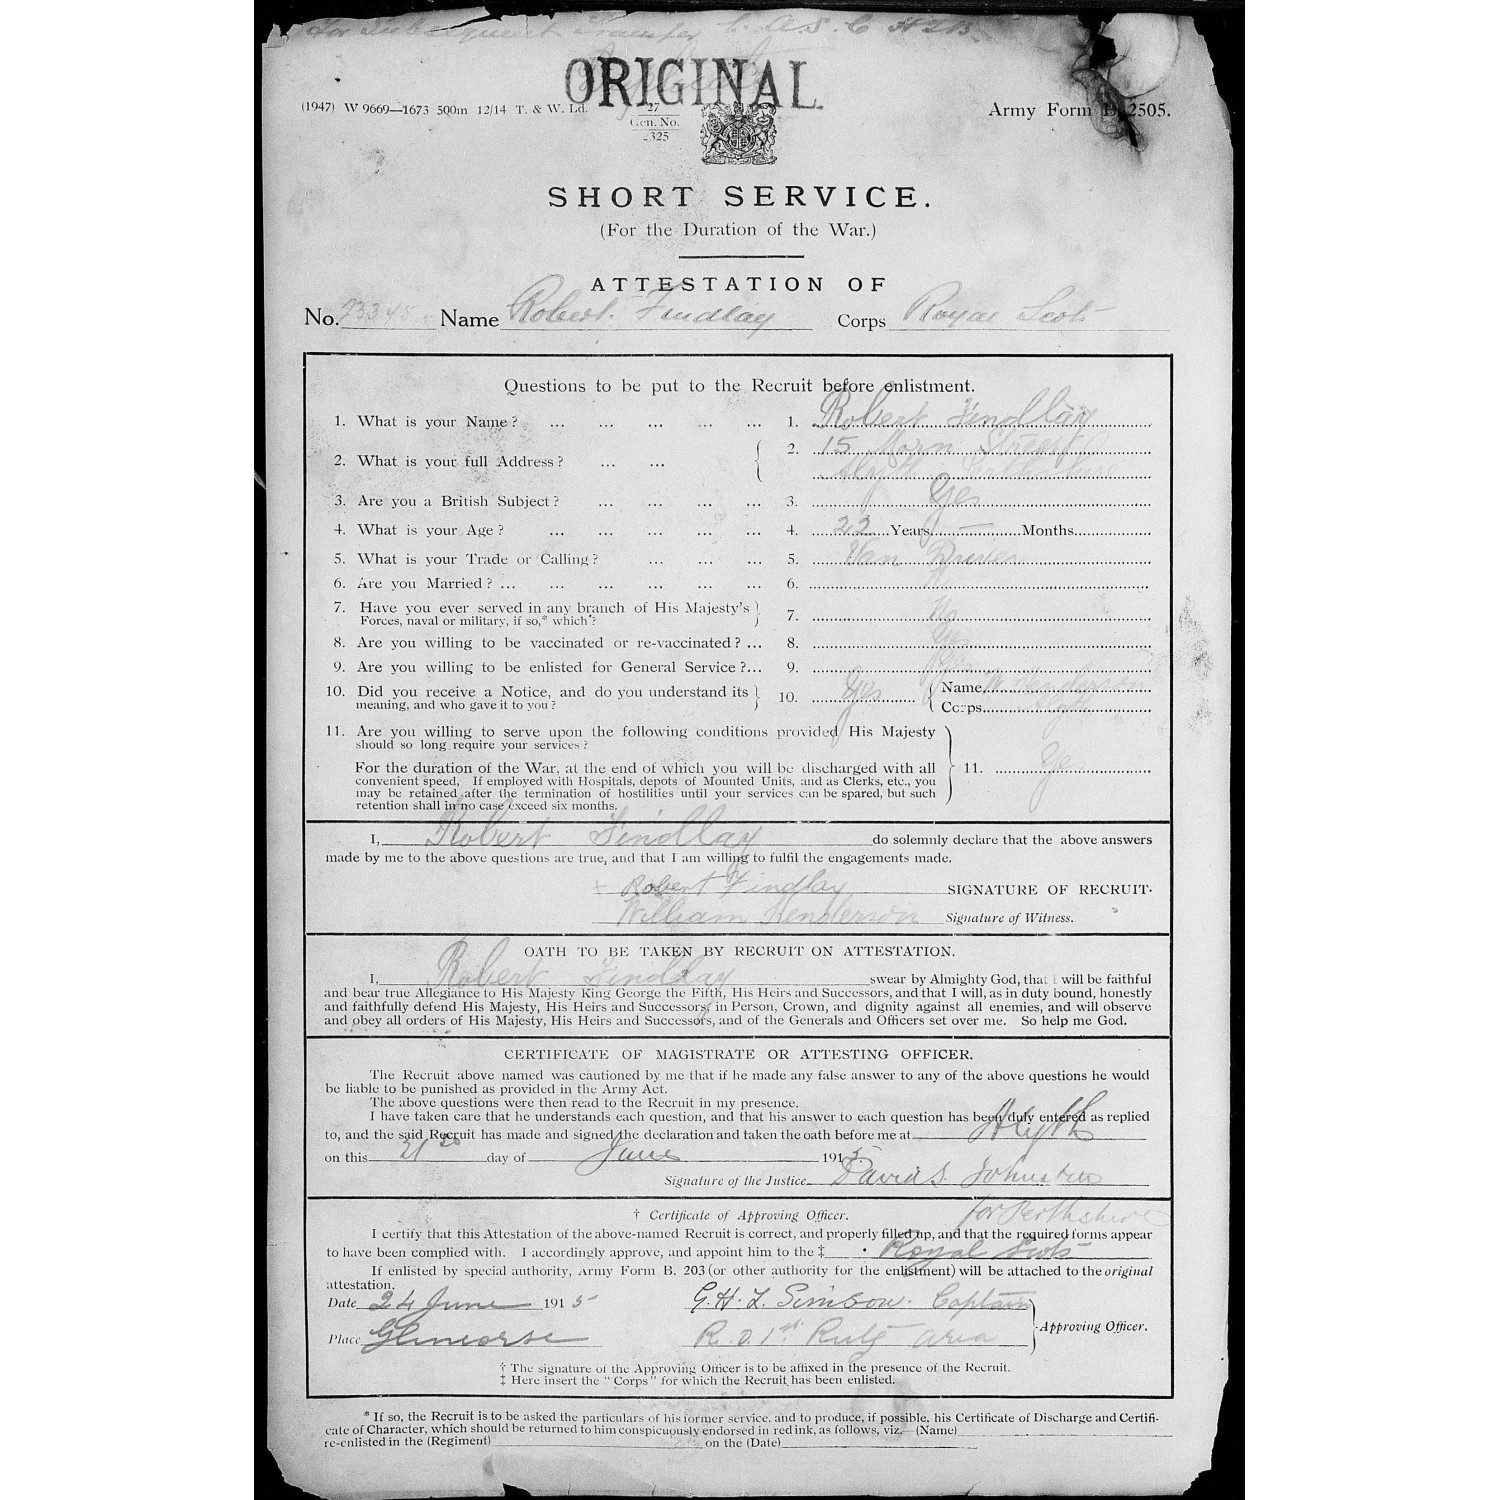 For Subsequent Transfer to A.S.C.
ORIGINAL.
(1947) W 9669—1673 500m 12/14 T. & W. Ld. 27
Gen. No.
325
Army Form B. 2505.
SHORT SERVICE.
(For the Duration of the War.)
ATTESTATION OF
No. Name Robert Findlay Corps Royal Scots
Questions to be put to the Recruit before enlistment.
1. What is your Name? ... ... ... ... ... 1. Robert Findlay
2. What is your full Address? ... ... 2. 15 Street
Alyth Perthshire
3. Are you a British Subject? ... ... ... ... 3. Yes
4. What is your Age? ... ... ... ... ... 4. 22 Years — Months
5. What is your Trade or Calling? ... ... ... 5. Van Driver
6. Are you Married? ... ... ... ... ... ... 6.
7. Have you ever served in any branch of His Majesty's
Forces, naval or military, if so,* which? 7. No
8. Are you willing to be vaccinated or re-vaccinated? ... 8. Yes
9. Are you willing to be enlisted for General Service? ... 9. Yes
10. Did you receive a Notice, and do you understand its
meaning, and who gave it to you? 10. Yes Name W Henderson
Corps Alyth
11. Are you willing to serve upon the following conditions provided His Majesty
should so long require your services?
For the duration of the War, at the end of which you will be discharged with all
convenient speed. If employed with Hospitals, depots of Mounted Units, and as Clerks, etc., you
may be retained after the termination of hostilities until your services can be spared, but such
retention shall in no case exceed six months. 11. Yes
I, Robert Findlay do solemnly declare that the above answers
made by me to the above questions are true, and that I am willing to fulfil the engagements made.
+ Robert Findlay SIGNATURE OF RECRUIT.
William Henderson Signature of Witness.
OATH TO BE TAKEN BY RECRUIT ON ATTESTATION.
I, Robert Findlay swear by Almighty God, that I will be faithful
and bear true Allegiance to His Majesty King George the Fifth, His Heirs and Successors, and that I will, as in duty bound, honestly
and faithfully defend His Majesty, His Heirs and Successors, in Person, Crown, and dignity against all enemies, and will observe
and obey all orders of His Majesty, His Heirs and Successors, and of the Generals and Officers set over me. So help me God.
CERTIFICATE OF MAGISTRATE OR ATTESTING OFFICER.
The Recruit above named was cautioned by me that if he made any false answer to any of the above questions he would
be liable to be punished as provided in the Army Act.
The above questions were then read to the Recruit in my presence.
I have taken care that he understands each question, and that his answer to each question has been duly entered as replied
to, and the said Recruit has made and signed the declaration and taken the oath before me at Alyth
on this 21st day of June 1915
Signature of the Justice David S. Johnston
for Perthshire
† Certificate of Approving Officer.
I certify that this Attestation of the above-named Recruit is correct, and properly filled up, and that the required forms appear
to have been complied with. I accordingly approve, and appoint him to the ‡ Royal Scots
If enlisted by special authority, Army Form B. 203 (or other authority for the enlistment) will be attached to the original
attestation.
Date 24 June 1915 G. H. L. Simson. Captain
Place Glencorse R. O. 1st Rctg area
Approving Officer.
† The signature of the Approving Officer is to be affixed in the presence of the Recruit.
‡ Here insert the "Corps" for which the Recruit has been enlisted.
* If so, the Recruit is to be asked the particulars of his former service, and to produce, if possible, his Certificate of Discharge and Certifi-
cate of Character, which should be returned to him conspicuously endorsed in red ink, as follows, viz.—(Name)
re-enlisted in the (Regiment) on the (Date)